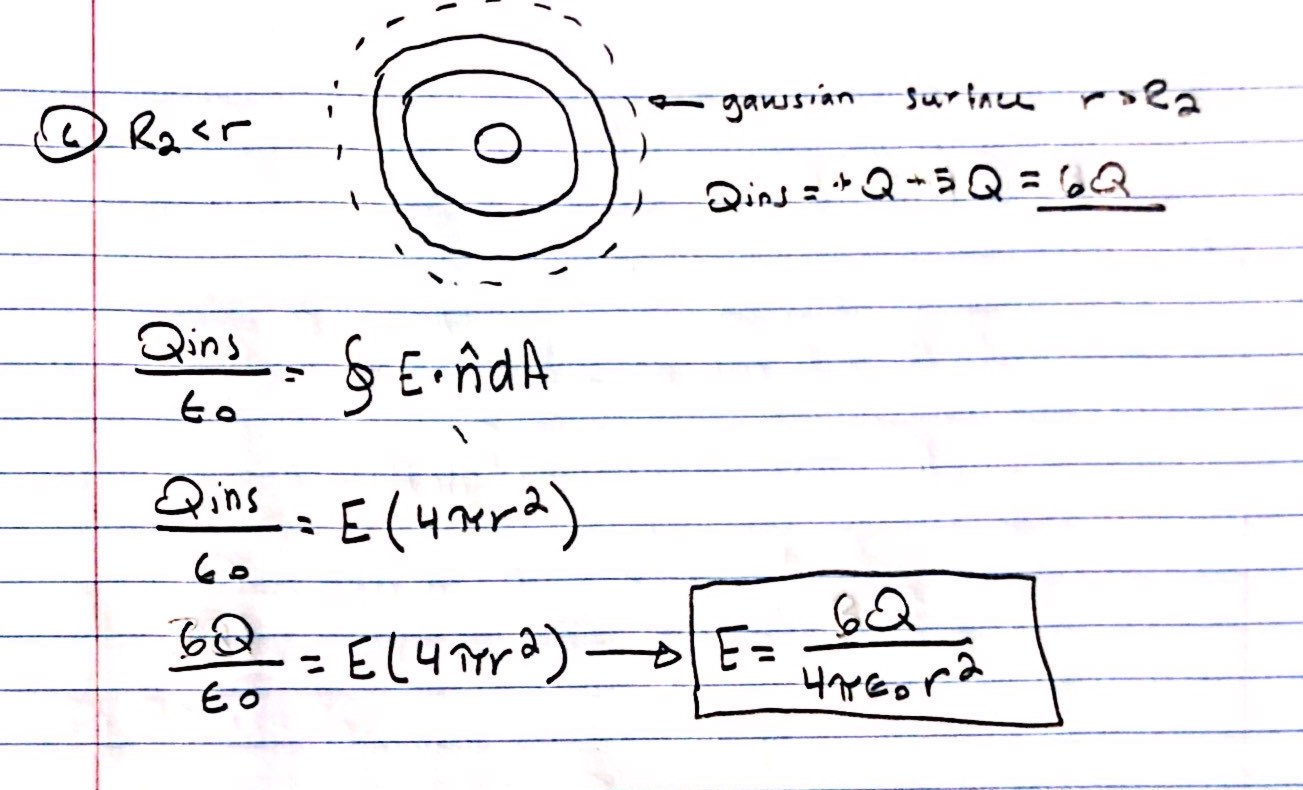 ← gaussian surface r > R₂
(c) R₂ < r
Qins = +Q + 5Q = 6Q
Qins/ε₀ = ∮ E · n̂ dA
Qins/ε₀ = E(4πr²)
6Q/ε₀ = E(4πr²) → E = 6Q/4πε₀r²